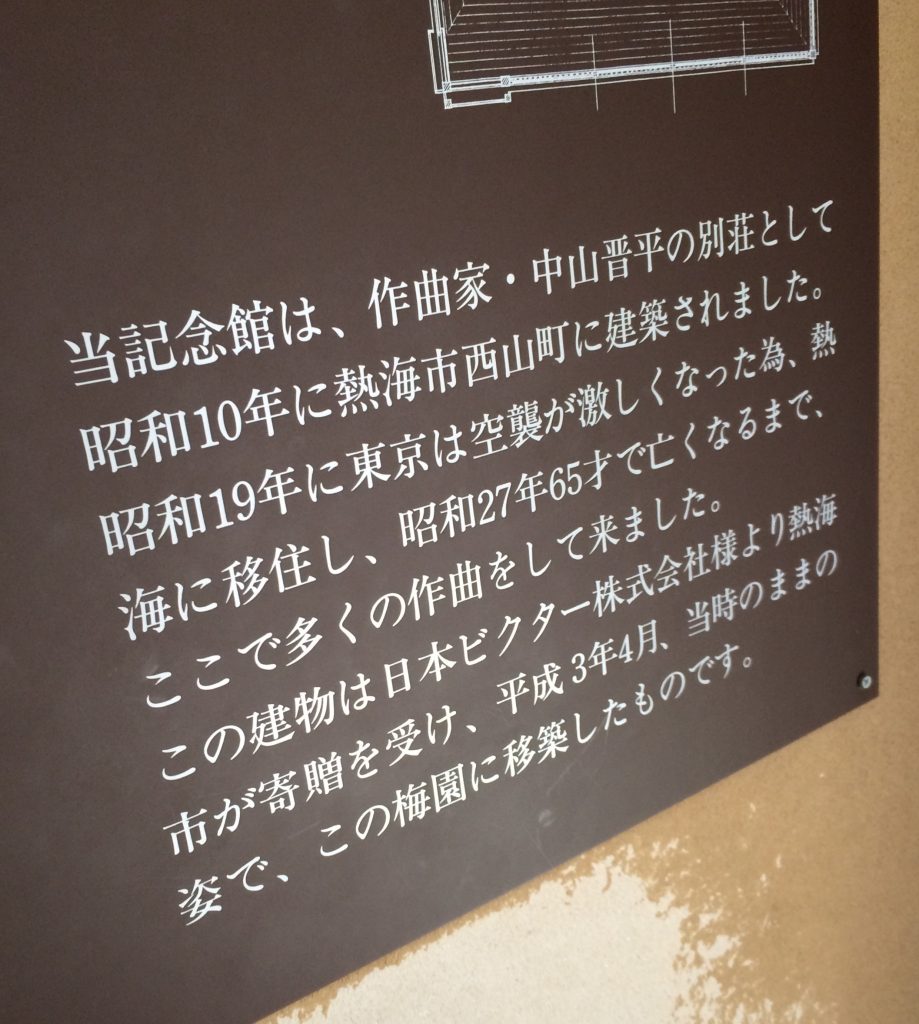 当記念館は、作曲家・中山晋平の別荘として
昭和10年に熱海市西山町に建築されました。
昭和19年に東京は空襲が激しくなった為、熱
海に移住し、昭和27年65才で亡くなるまで、
ここで多くの作曲をして来ました。
この建物は日本ビクター株式会社様より熱海
市が寄贈を受け、平成3年4月、当時のままの
姿で、この梅園に移築したものです。